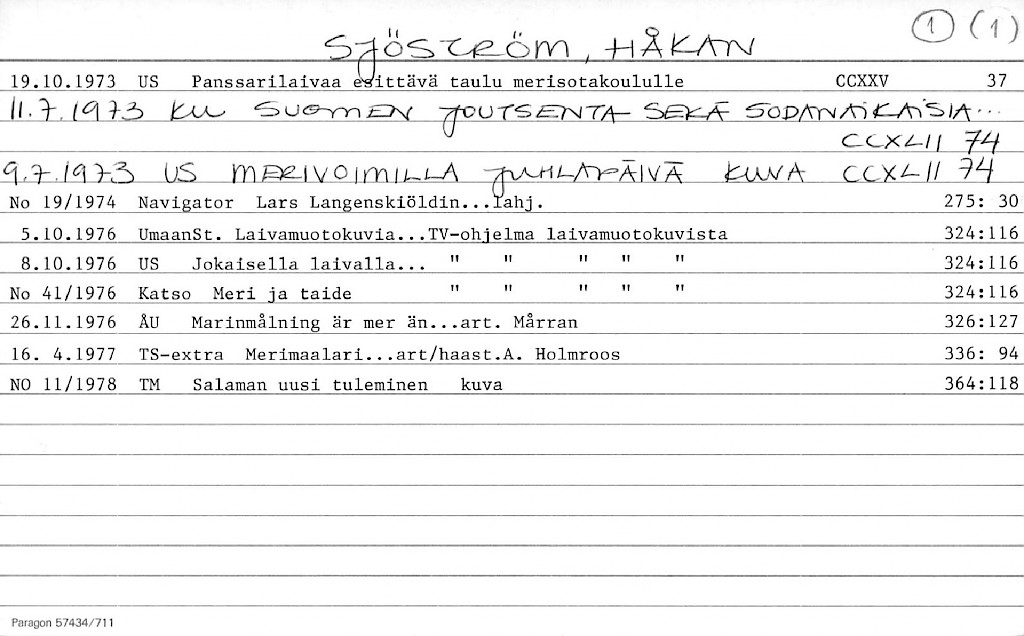 ① (1)
SJÖSTRÖM, HÅKAN
19.10.1973 US Panssarilaivaa esittävä taulu merisotakoululle CCXXV 37
11.7.1973 KU SUOMEN JOUTSENTA SEKÄ SODANAIKAISIA...
CCXLII 74
9.7.1973 US MERIVOIMILLA JUHLAPÄIVÄ KUVA CCXLII 74
No 19/1974 Navigator Lars Langenskiöldin...lahj. 275: 30
5.10.1976 UmaanSt. Laivamuotokuvia...TV-ohjelma laivamuotokuvista 324:116
8.10.1976 US Jokaisella laivalla... " " " " " 324:116
No 41/1976 Katso Meri ja taide " " " " " 324:116
26.11.1976 ÅU Marinmålning är mer än...art. Mårran 326:127
16. 4.1977 TS-extra Merimaalari...art/haast.A. Holmroos 336: 94
NO 11/1978 TM Salaman uusi tuleminen kuva 364:118
Paragon 57434/711